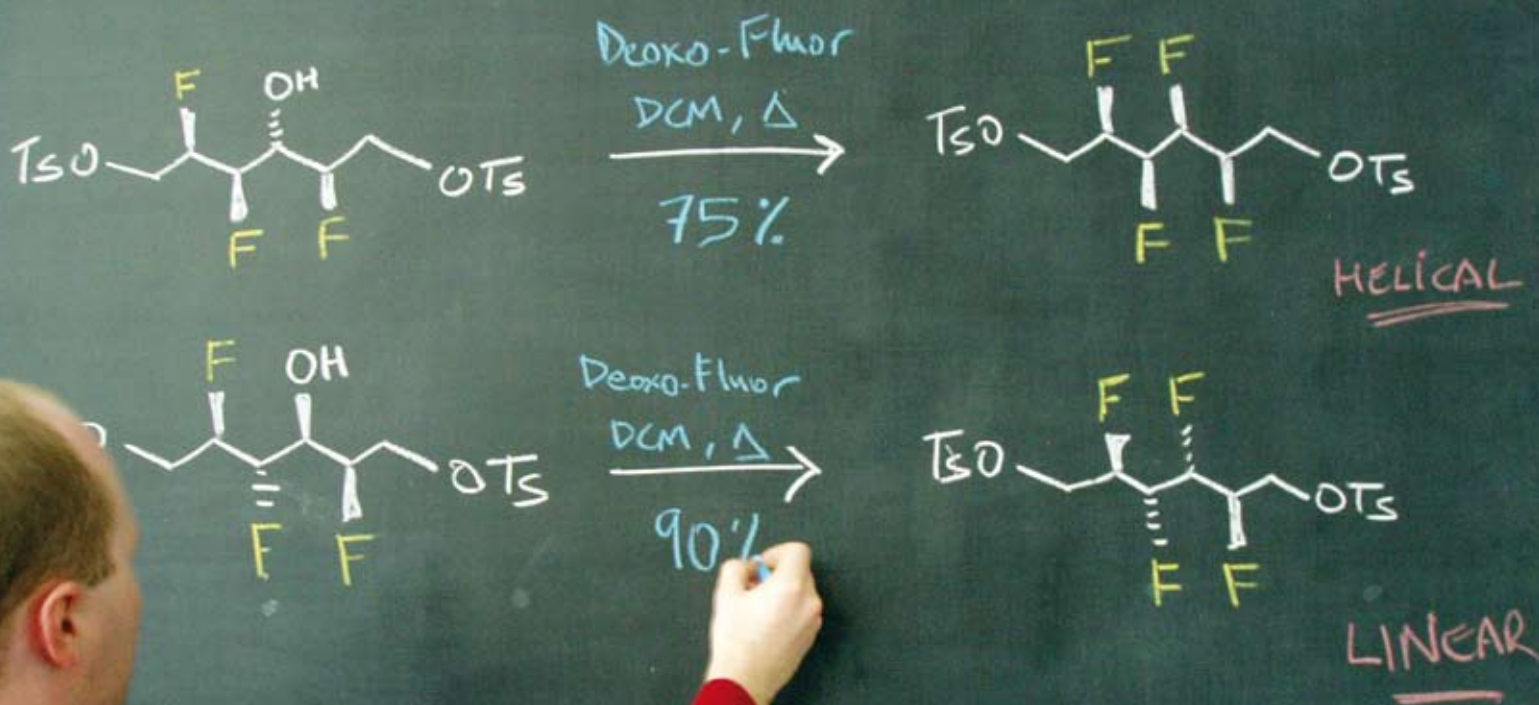 F OH
TsO OTs
F F
Deoxo-Fluor
DCM, Δ
75%
F F
TsO OTs
F F
HELICAL
F OH
O OTs
F F
Deoxo-Fluor
DCM, Δ
90%
F F
TsO OTs
F F
LINEAR